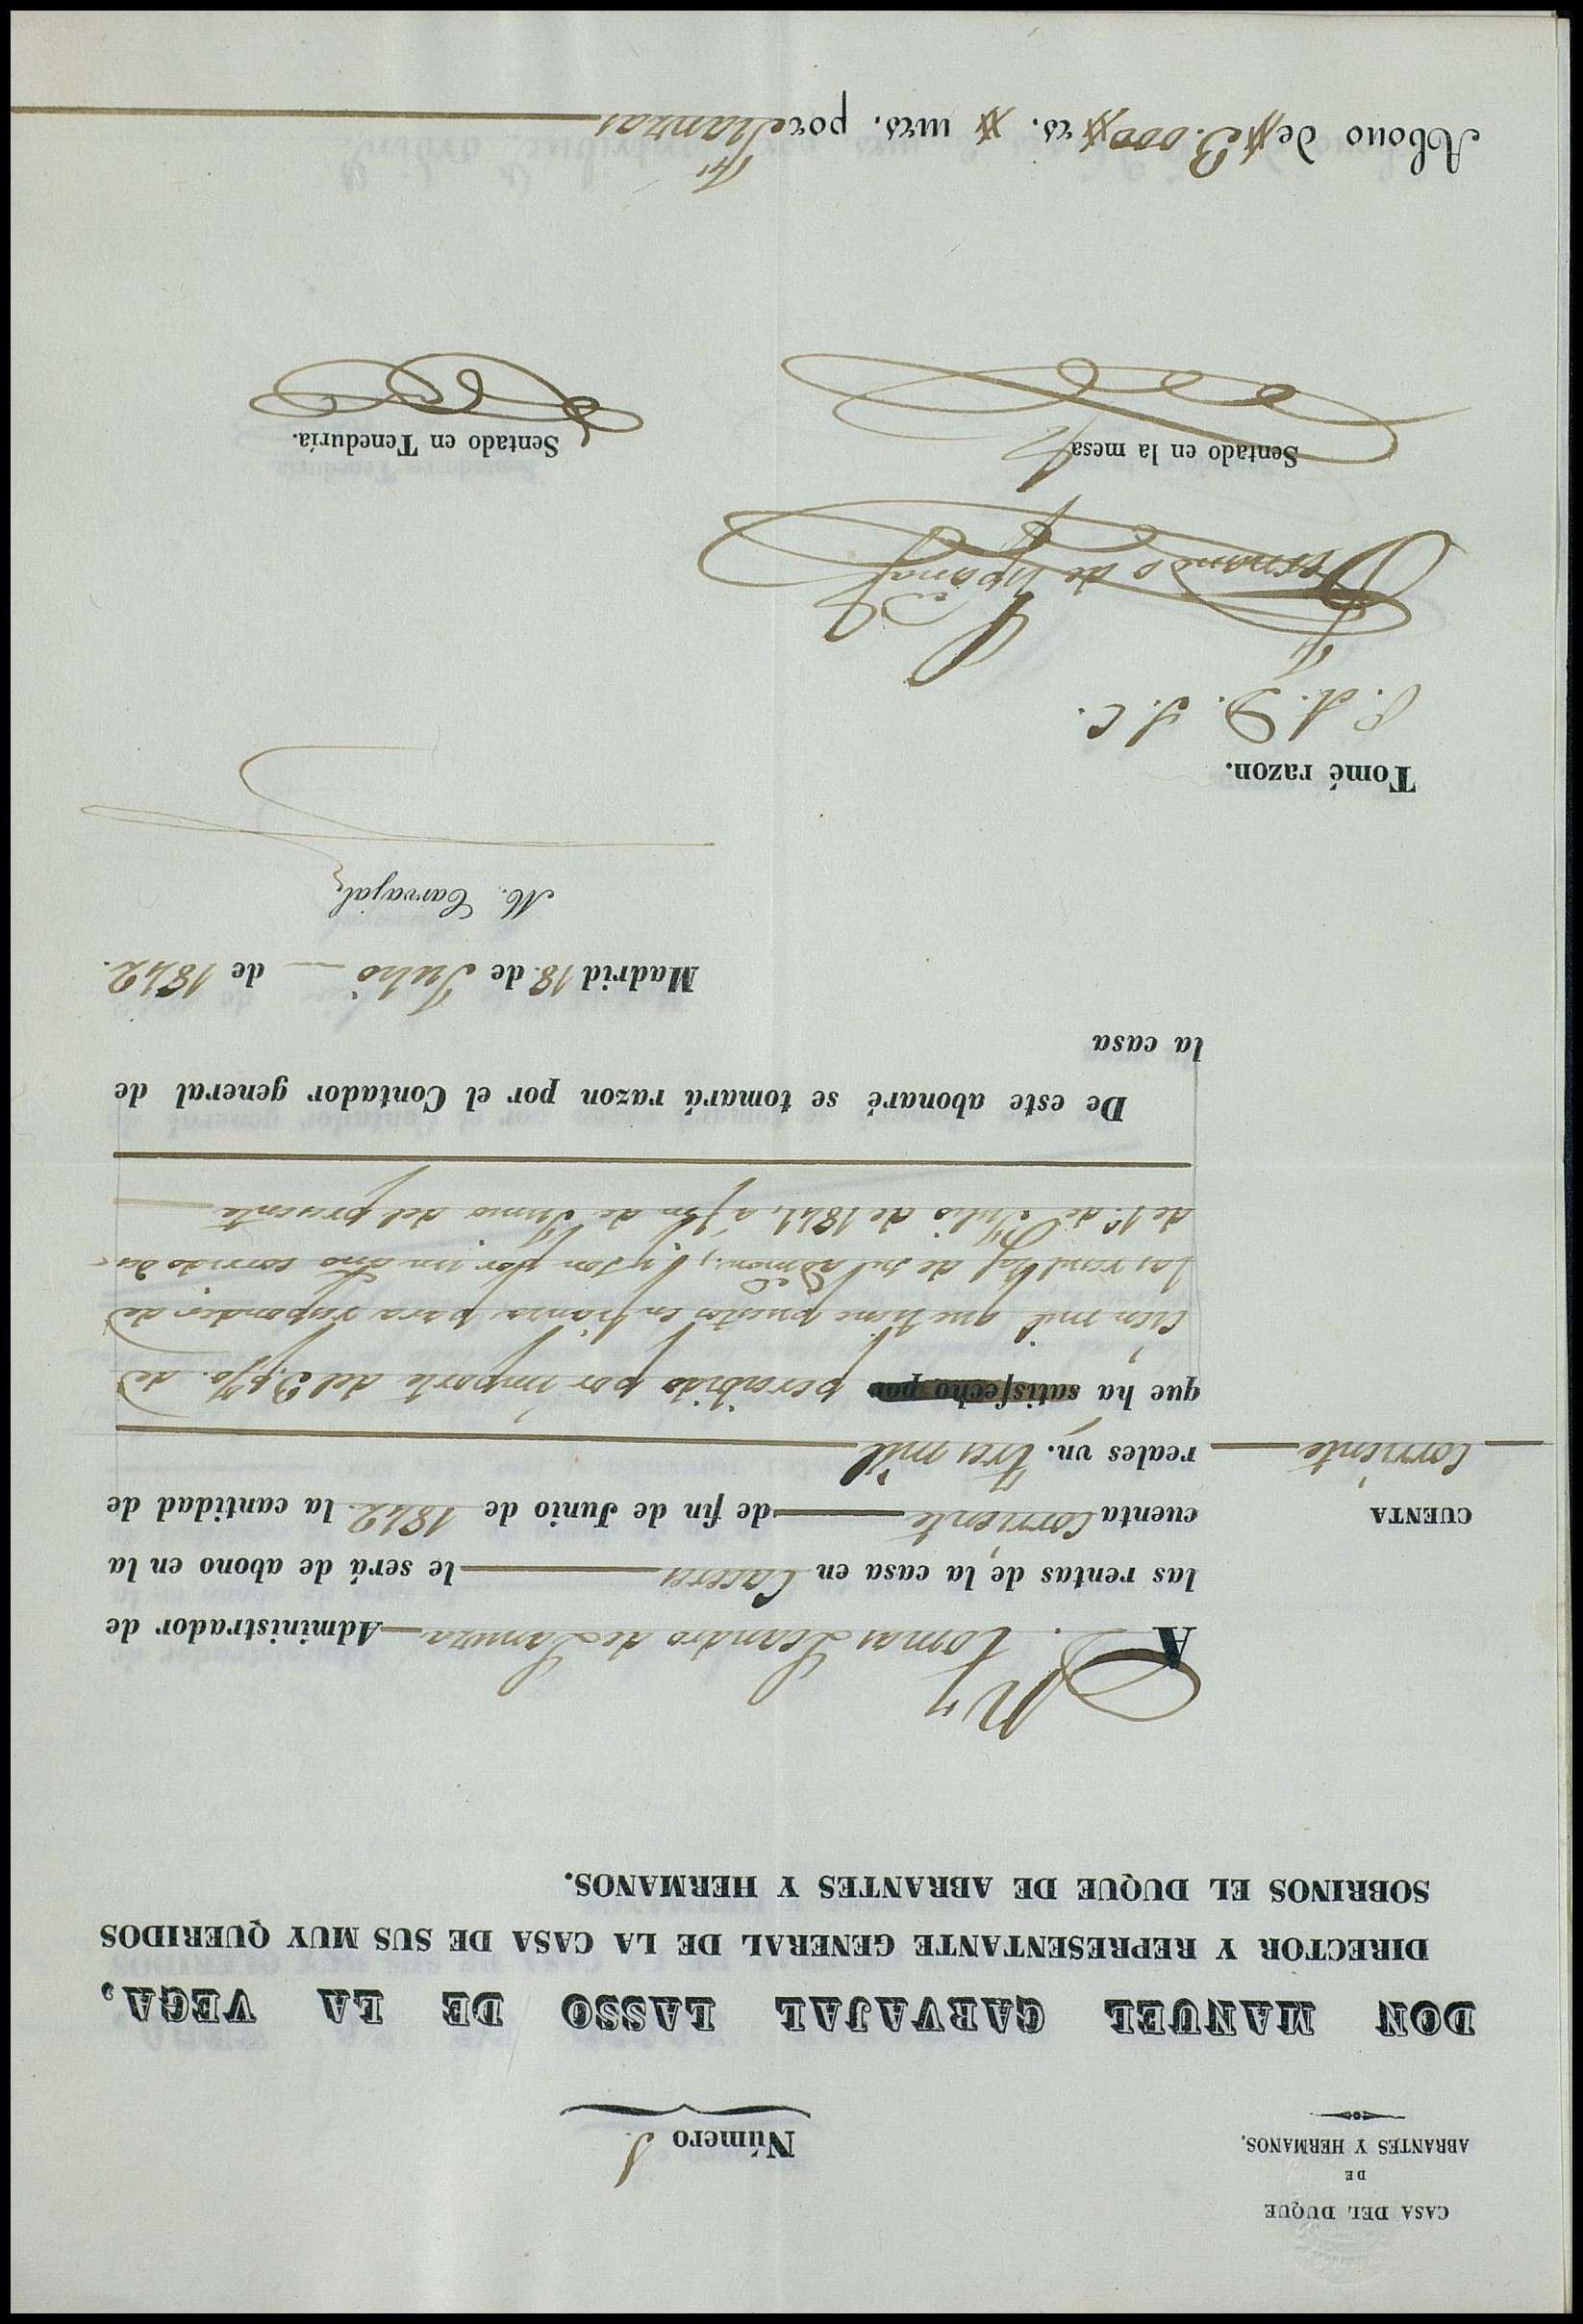 CASA DEL DUQUE
DE
ABRANTES Y HERMANOS.
Número 1.
DON MANUEL CARVAJAL LASSO DE LA VEGA,
DIRECTOR Y REPRESENTANTE GENERAL DE LA CASA DE SUS MUY QUERIDOS
SOBRINOS EL DUQUE DE ABRANTES Y HERMANOS.
A D. Tomas Leandro de Administrador de
las rentas de la casa en Caceres le será de abono en la
CUENTA
cuenta corriente de fin de Junio de 1842. la cantidad de
Corriente
reales vn. tres mil
que ha satisfecho por percibido por importe del 3 p%. de
cien mil que tiene puestos en fianza para responder de
las de su admon., y son por un año corrido des-
de 1.º de Julio de 1841, a fin de Junio del presente
De este abonaré se tomará razon por el Contador general de
la casa
Madrid 18. de Julio de 1842.
M. Carvajal
Tomé razon.
P. A. D. S. C.
Fernando de
Sentado en la mesa
Sentado en Teneduría.
Abono de 3.000 rs. mrs. por Fianzas